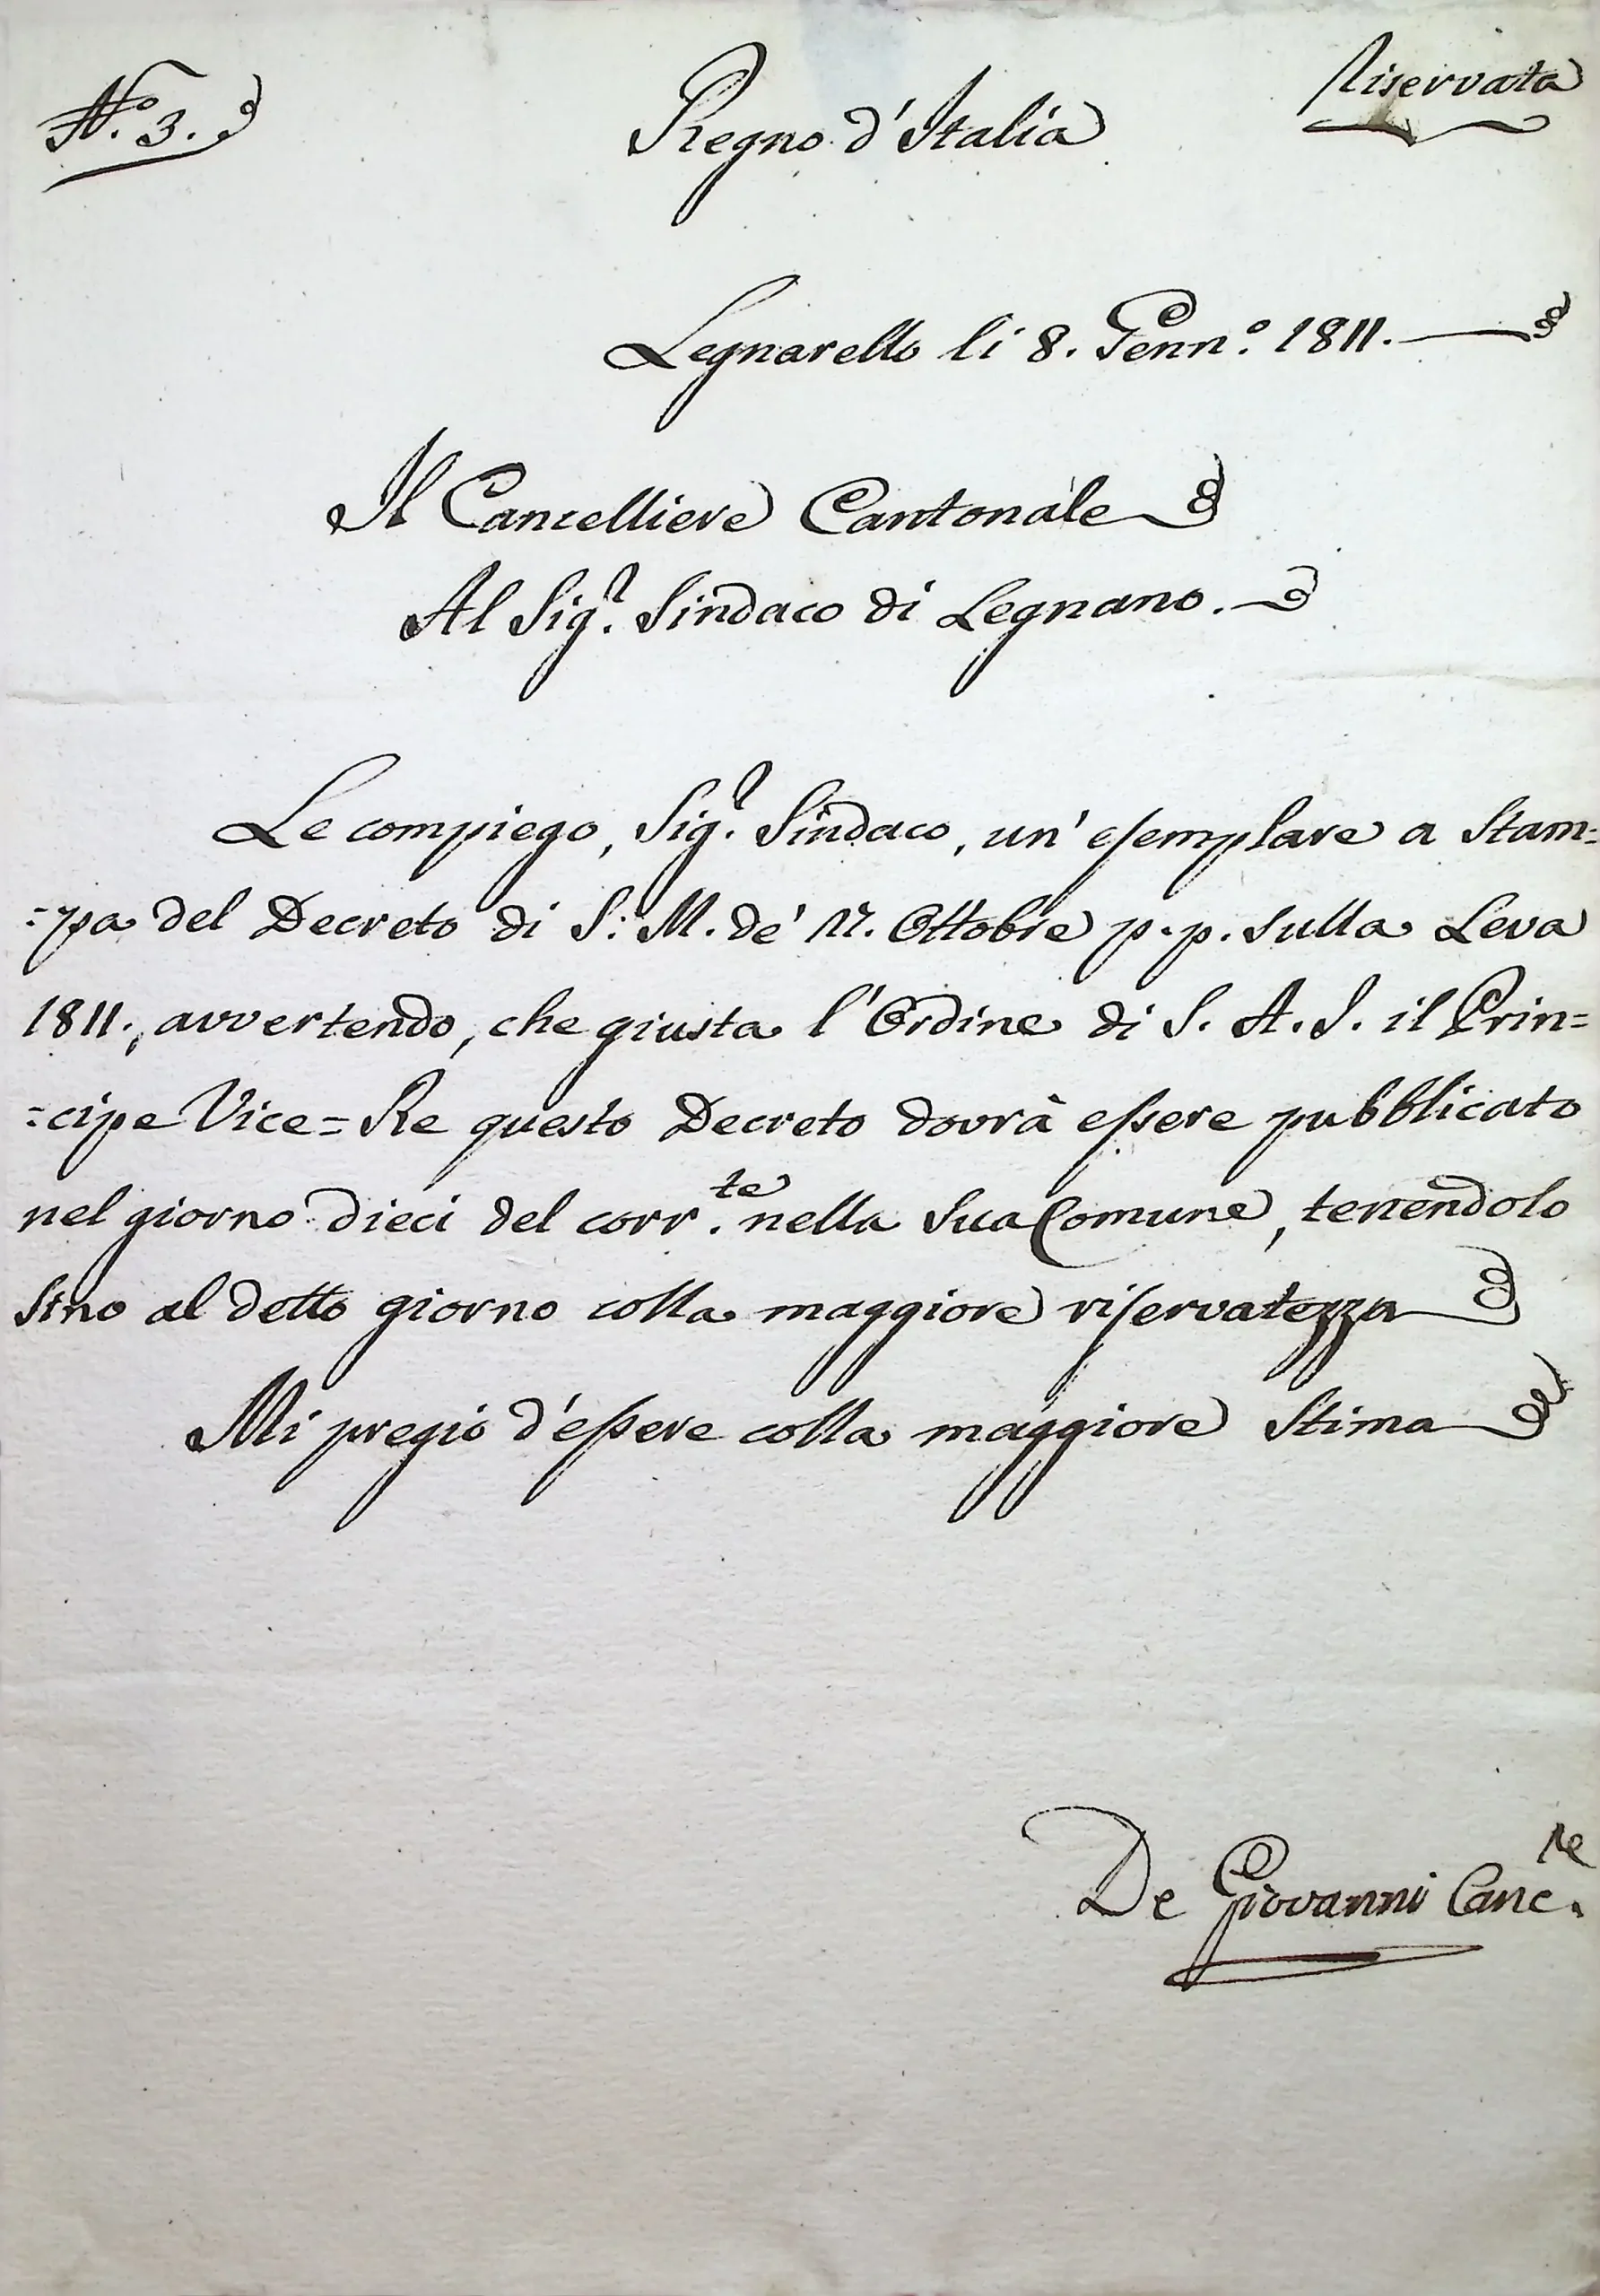 N.° 3.
Regno d'Italia
Riservata
Legnarello li 8. Genn.° 1811.
Il Cancelliere Cantonale
Al Sig.r Sindaco di Legnano.
Le compiego, Sig.r Sindaco, un' esemplare a Stam=
=pa del Decreto di S. M. de' Ottobre p. p. sulla Leva
1811., avvertendo, che giusta l'Ordine di S. A. I. il Prin=
=cipe Vice=Re questo Decreto dovrà essere pubblicato
nel giorno dieci del corr.te nella Sua Comune, tenendolo
sino al detto giorno colla maggiore riservatezza
Mi pregio d'essere colla maggiore Stima
De Giovanni Canc.re